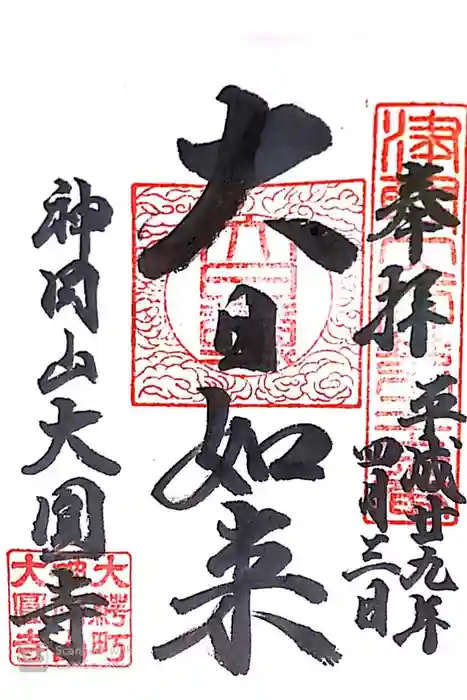 奉拝
平成廿九年
四月三日
大日如来
神岡山大圓寺
大鰐町
大圓寺